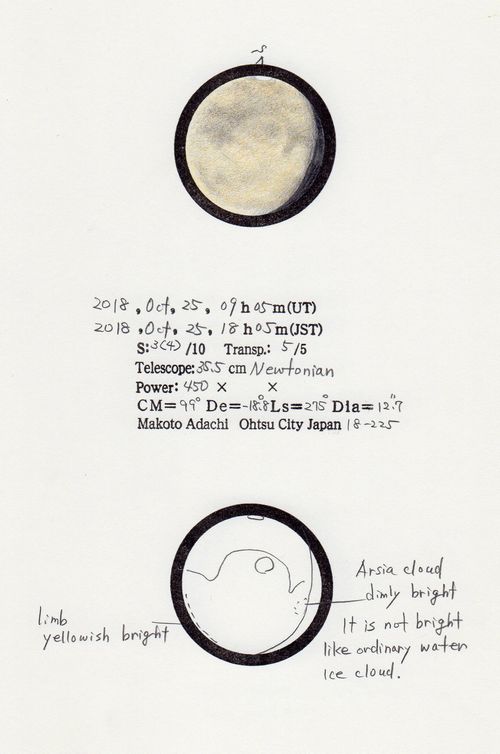 S
2018, Oct, 25, 09 h 05 m (UT)
2018, Oct, 25, 18 h 05 m (JST)
S: 3(4) /10 Transp.: 5/5
Telescope: 35.5 cm Newtonian
Power: 450 × ×
CM= 99° De= -18.8° Ls= 275° Dia= 12.″7
Makoto Adachi Ohtsu City Japan 18-225
Arsia cloud
dimly bright
It is not bright
like ordinary water
ice cloud.
limb
yellowish bright